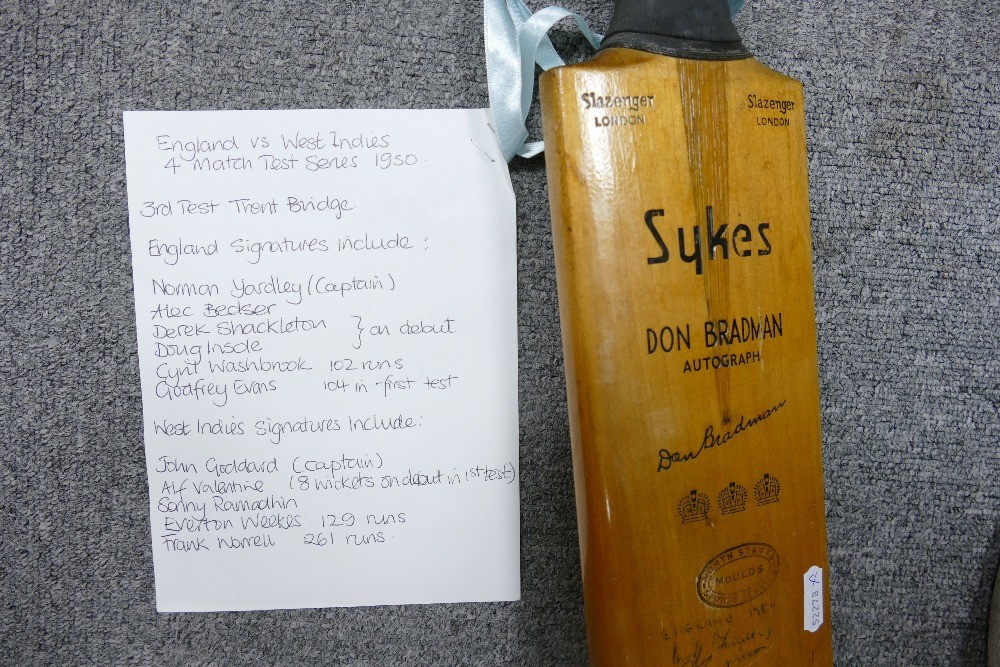 England vs West Indies
4 Match Test Series 1950.
3rd Test Trent Bridge.
England Signatures include:
Norman Yardley (Captain)
Alec Bedser
Derek Shackleton } on debut
Doug Insole
Cyril Washbrook 102 runs
Godfrey Evans 104 in first test
West Indies signatures include:
John Goddard (captain)
Alf Valentine (8 wickets on debut in 1st test)
Sonny Ramadhin
Everton Weekes 129 runs
Frank Worrell 261 runs.
Slazenger
LONDON
Slazenger
LONDON
Sykes
DON BRADMAN
AUTOGRAPH
Don Bradman
NORTH STREET
MOULDS
ENGLAND
52278